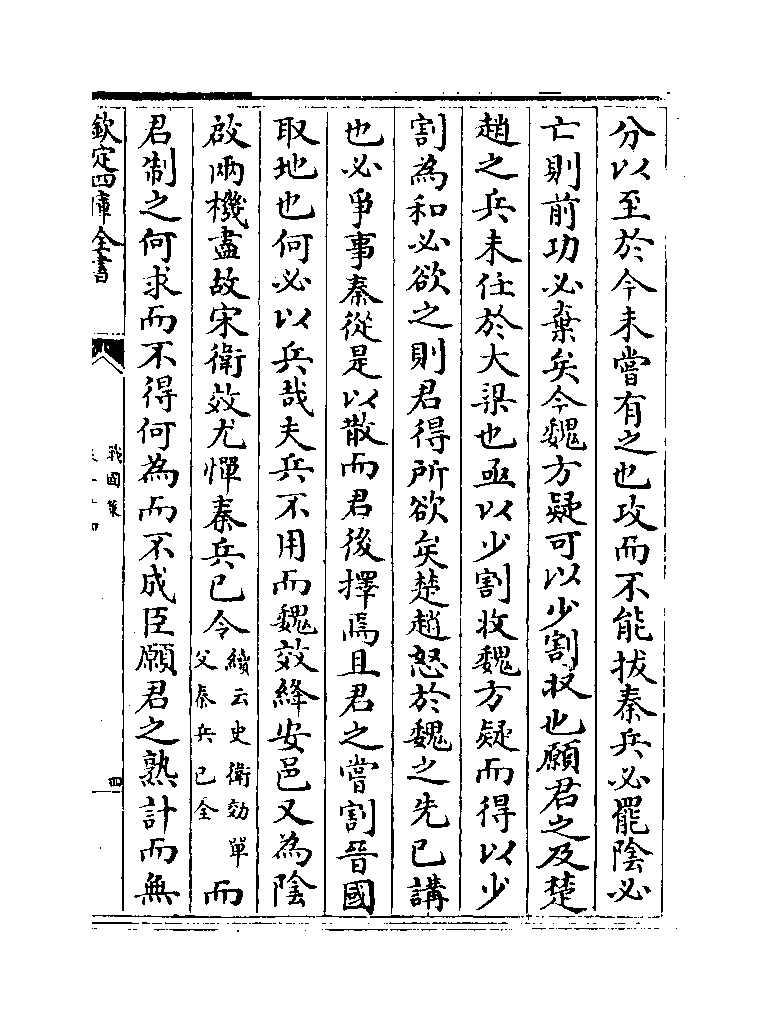 分以至於今未嘗有之也攻而不能拔秦兵必罷陰必
亡則前功必棄矣今魏方疑可以少割收也願君之及楚
趙之兵未任於大梁也亟以少割收魏方疑而得以少
割為和必欲之則君得所欲矣楚趙怒於魏之先已講
也必爭事秦從是以散而君後擇焉且君之嘗割晉國
取地也何必以兵哉夫兵不用而魏效絳安邑又為陰
啟兩機盡故宋衛效尤憚秦兵已令續云史衛効單父秦兵已全而
君制之何求而不得何為而不成臣願君之熟計而無
欽定四庫全書
戰國策
四